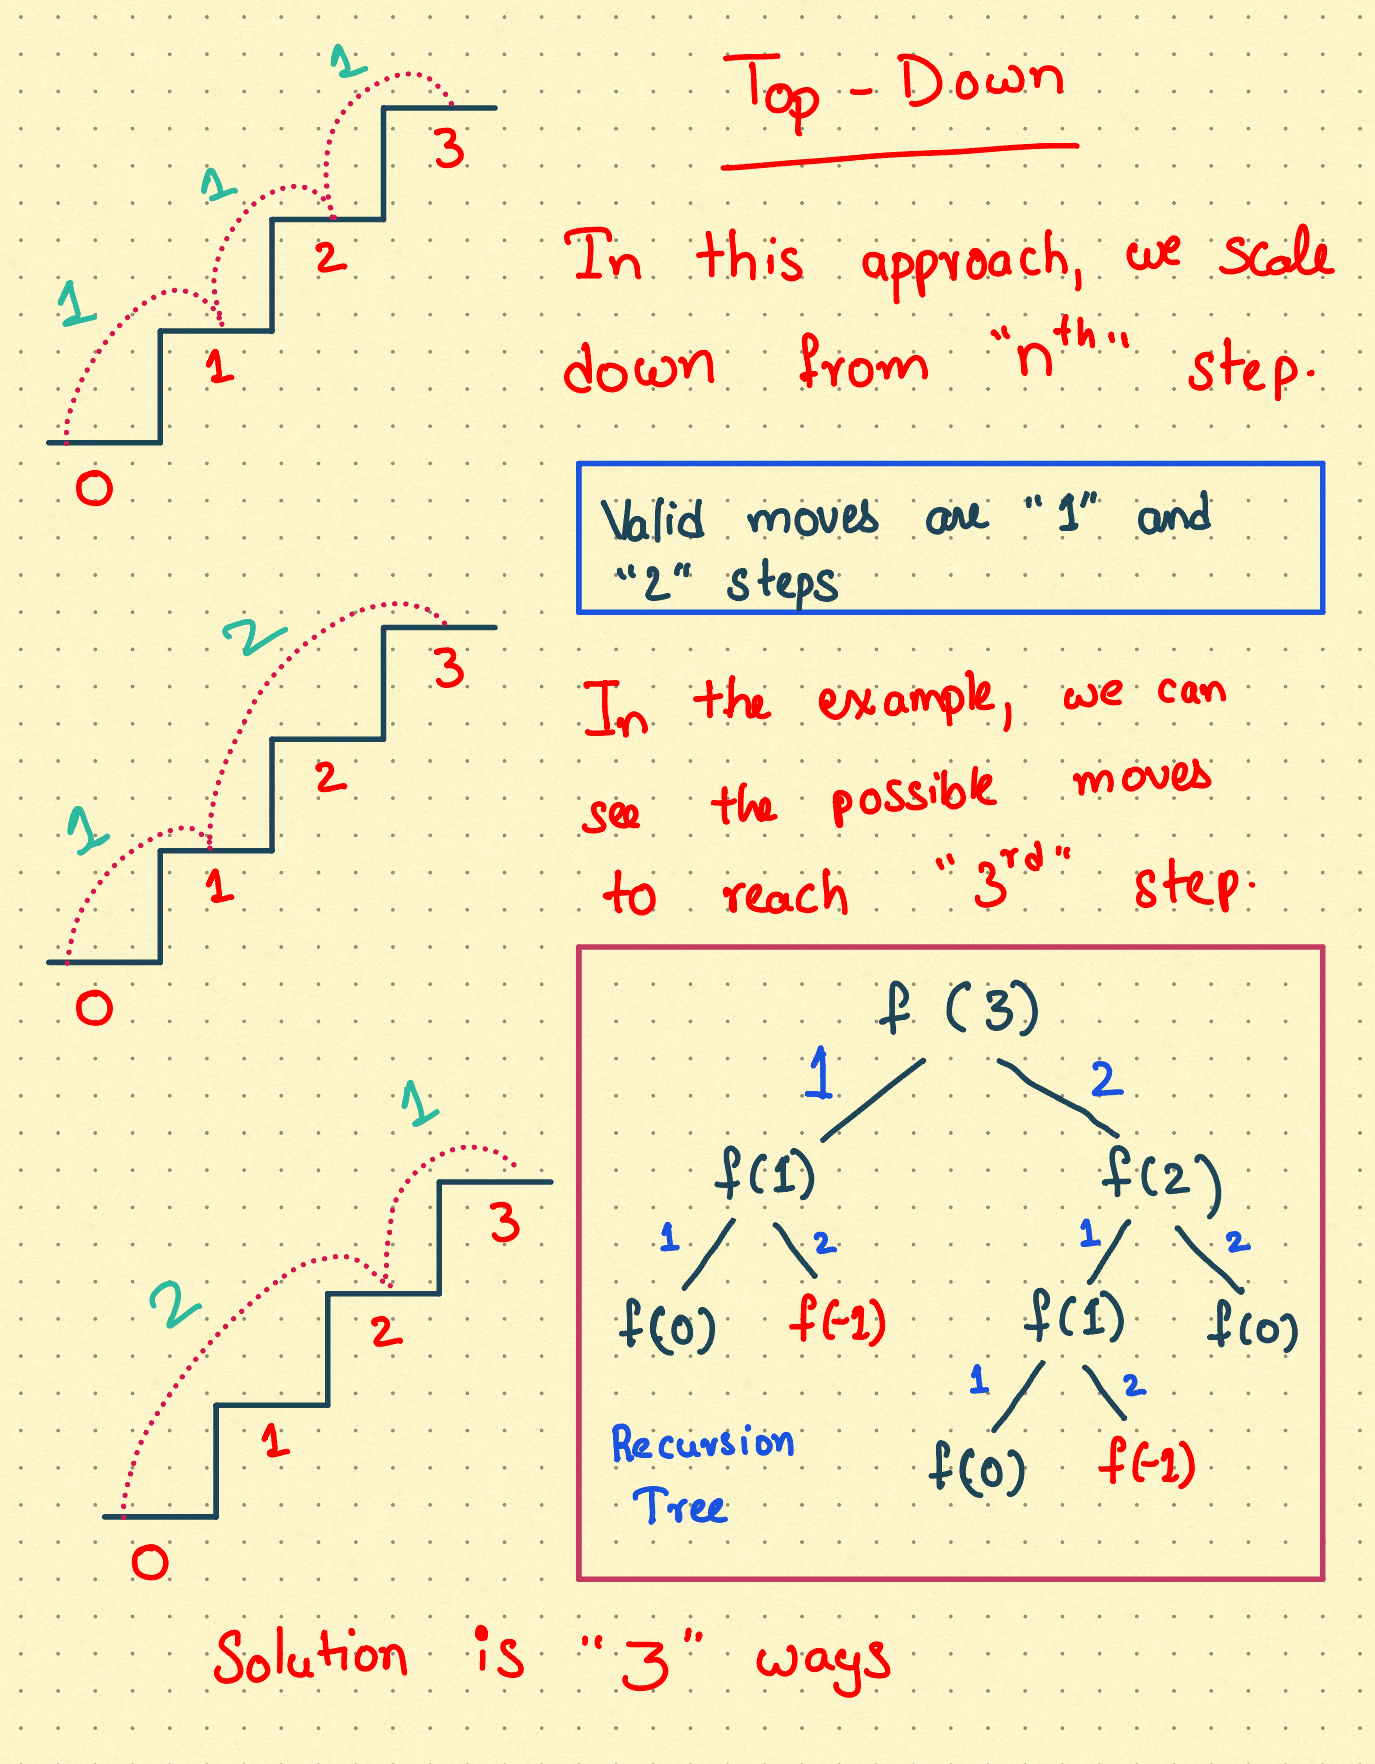 Top-Down
In this approach, we scale
down from "nth" step.
Valid moves are "1" and
"2" steps
In the example, we can
see the possible moves
to reach "3rd" step.
1
3
1
2
1
1
0
2
3
2
1
1
0
1
3
2
2
1
0
f (3)
1 2
f(1) f(2)
1 2 1 2
f(0) f(-1) f(1) f(0)
1 2
f(0) f(-1)
Recursion
Tree
Solution is "3" ways